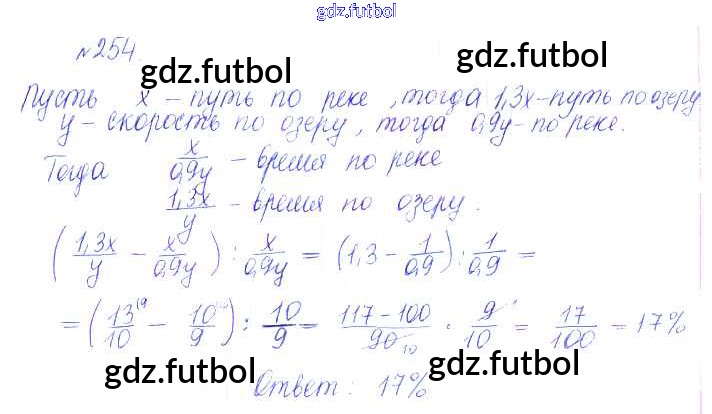 gdz.futbol
№254
gdz.futbol gdz.futbol
Пусть x – путь по реке, тогда 1,3x – путь по озеру
y – скорость по озеру, тогда 0,9y – по реке.
Тогда x/0,9y – время по реке
1,3x/y – время по озеру.
(1,3x/y − x/0,9y) : x/0,9y = (1,3 − 1/0,9) : 1/0,9 =
= (13/10 − 10/9) : 10/9 = 117−100/90 · 9/10 = 17/100 = 17%
gdz.futbol gdz.futbol
Ответ: 17%